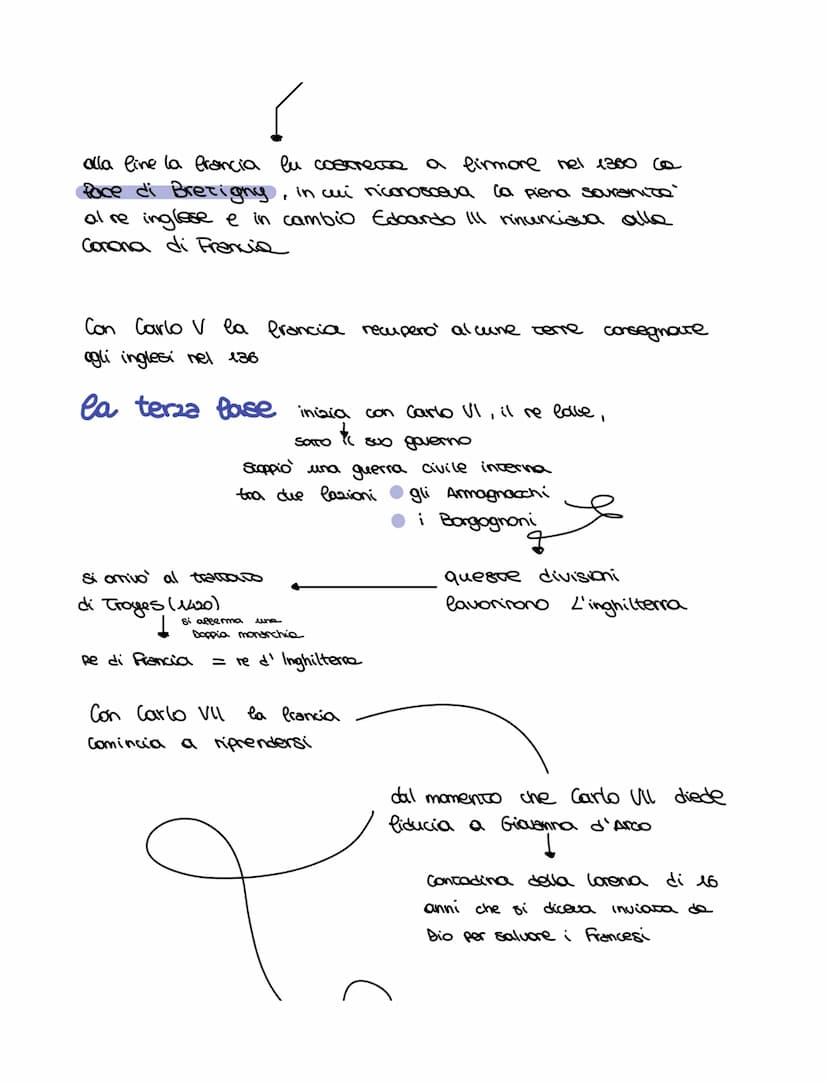 alla fine la francia fu costretta a firmare nel 1360 la
Pace di Bretigny, in cui riconosceva la piena sovranità
al re inglese e in cambio Edoardo III rinunciava alla
Corona di Francia
Con Carlo V la francia recuperò alcune terre consegnate
agli inglesi nel 136
la terza fase inizia con Carlo VI, il re folle,
sotto il suo governo
scoppiò una guerra civile interna
tra due fazioni gli Armagnacchi
i Borgognoni
queste divisioni
favorirono L'inghilterra
si arrivò al trattato
di Troyes (1420)
si afferma una
Doppia monarchia
Re di Francia = re d' Inghilterra
Con Carlo VII la francia
comincia a riprendersi
dal momento che Carlo VII diede
fiducia a Giovanna d'Arco
Contadina della Lorena di 16
anni che si diceva inviata da
Dio per salvare i Francesi